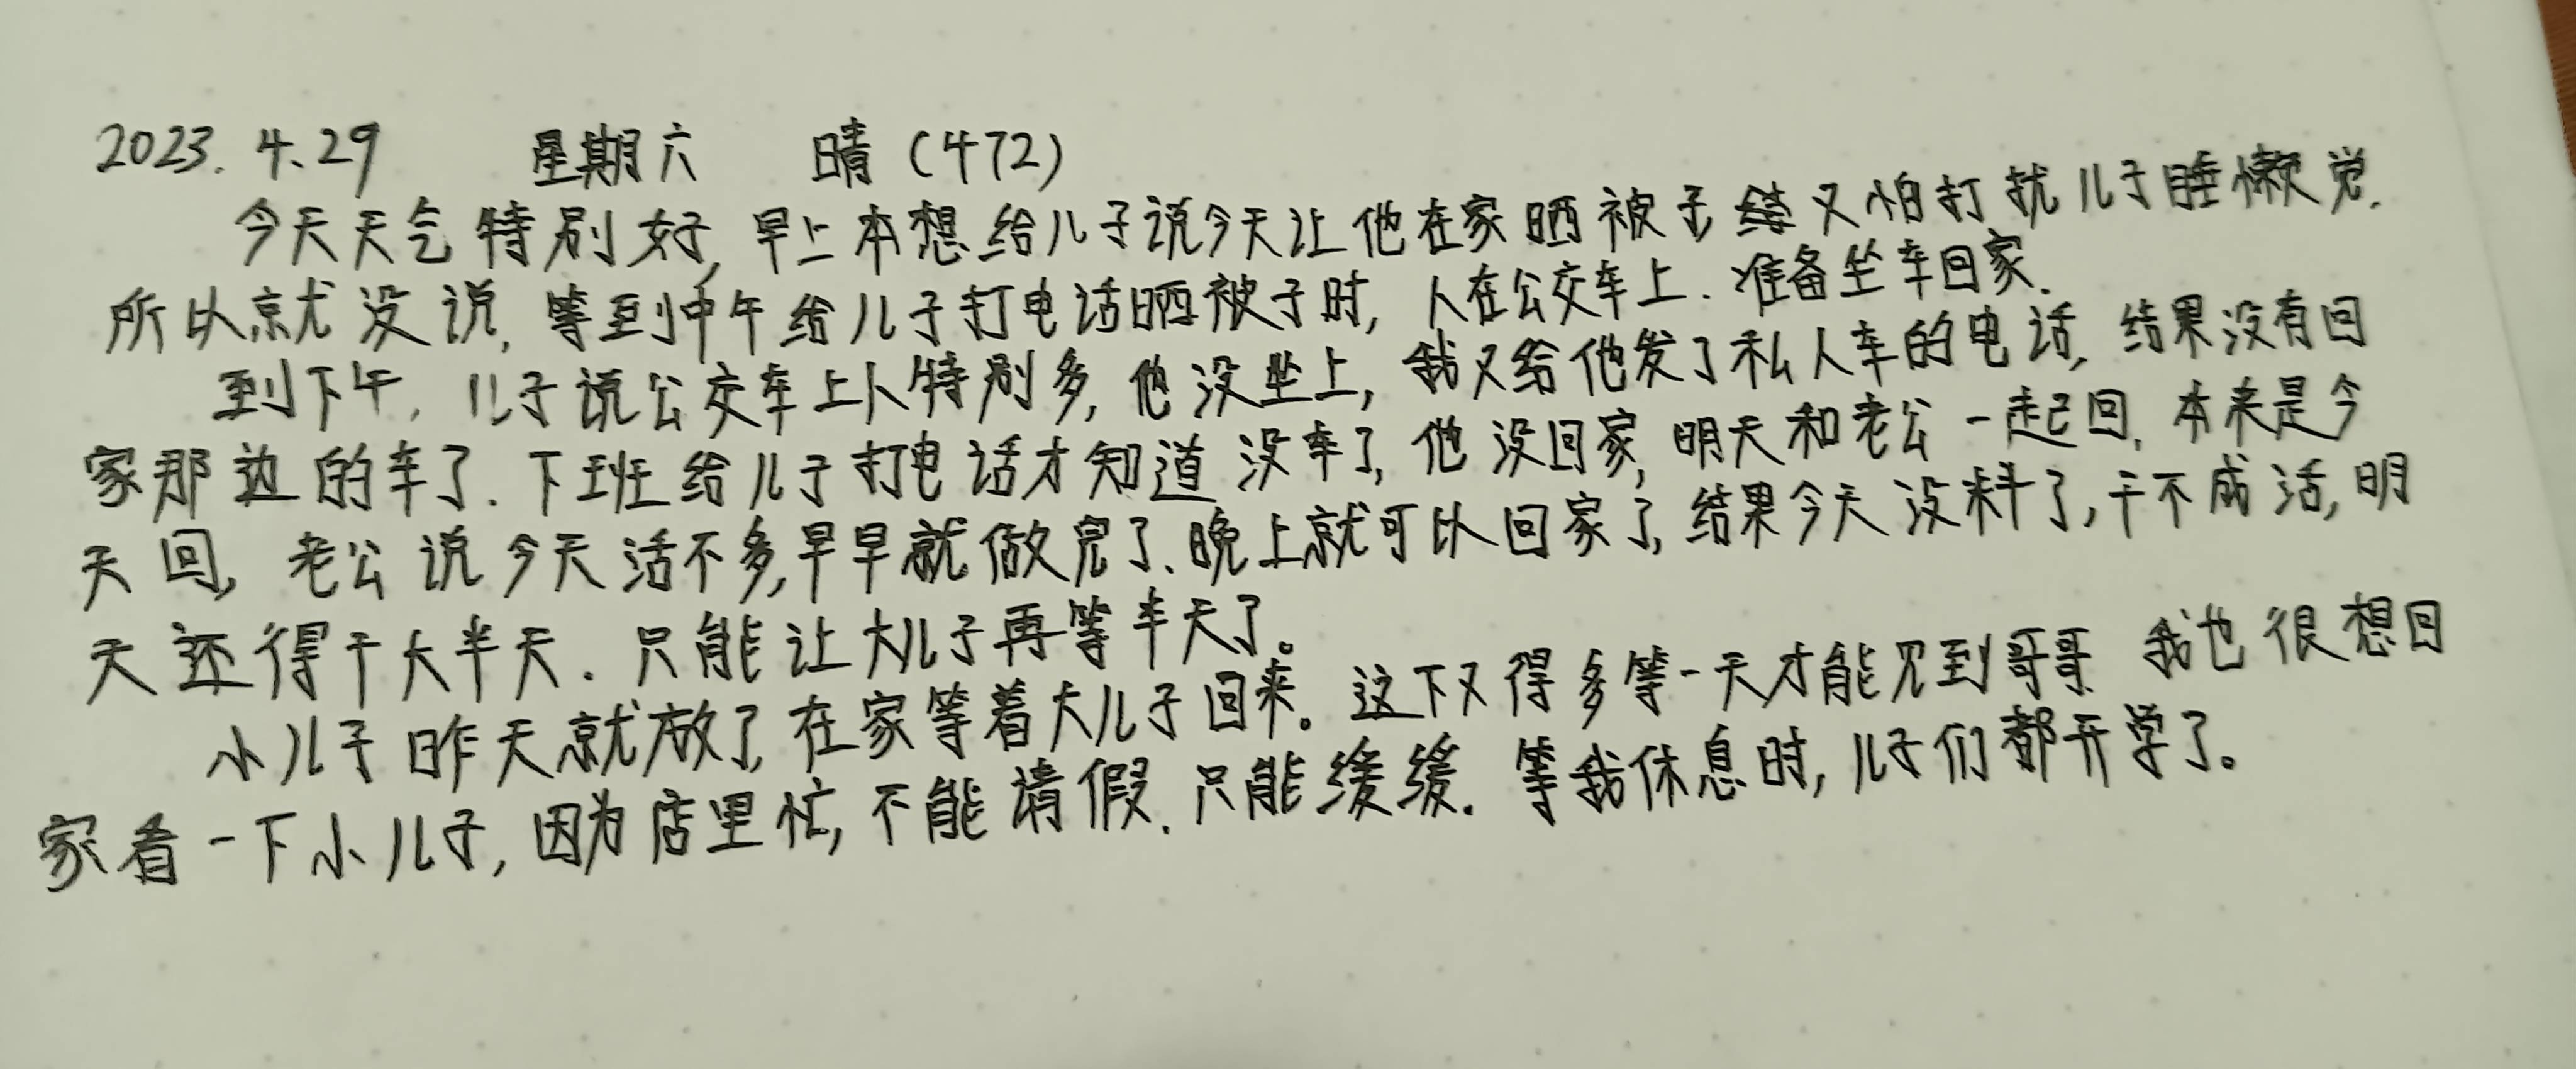 2023. 4.29 星期六 晴 (472)
今天天气特别好, 早上本想给儿子说今天让他在家晒被子 又怕打扰儿子睡懒觉.
所以就没说, 等到中午给儿子打电话晒被子时, 人在公交车上. 准备坐车回家.
到下午, 儿子说公交车上人特别多, 他没坐上, 我又给他发了私人车的电话, 结果没有回
家那边的车了. 下班给儿子打电话才知道没车了, 他没回家, 明天和老公一起回. 本来是今
天回, 老公说今天活不多, 早早就做完了、晚上就可以回家了, 结果今天没料了, 干不成活, 明
天还得干大半天. 只能让大儿子再等半天了。
小儿子昨天就放了, 在家等着大儿子回来。这下又得多等一天才能见到哥哥 我也很想回
家看一下小儿子, 因为店里忙, 不能请假. 只能缓缓. 等我休息时, 儿子们都开学了。